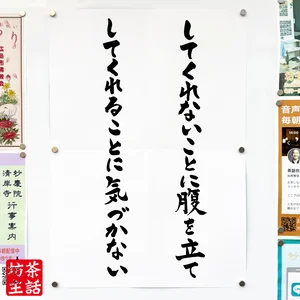 してくれないことに腹を立て
してくれることに気づかない
音声
毎朝
妙慶院
清岸寺
行事案内
坊主
茶話